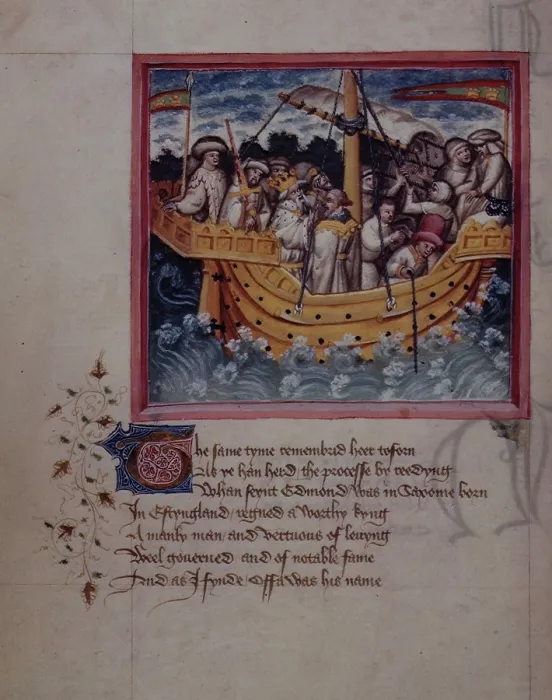 The same tyme remembrid heer toforn
As ye han herd / the processe by redyng
Whan seynt Edmond / was in Saxonie born
In Estyngland / regned a worthy kyng
A manly man / and vertuous of levyng
Weel governed and of notable fame
And as I fynde / Offa was his name